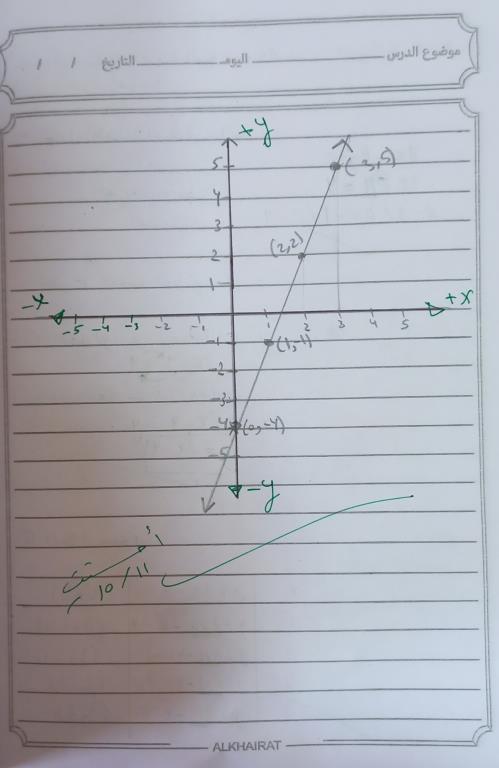 موضوع الدرس اليوم التاريخ / /
+y
5 (3,5)
4
3
2 (2,2)
1
-x +x
-5 -4 -3 -2 -1 1 2 3 4 5
-1 (1,-1)
-2
-3
-4 (0,-4)
-5
-y
10/11
ALKHAIRAT